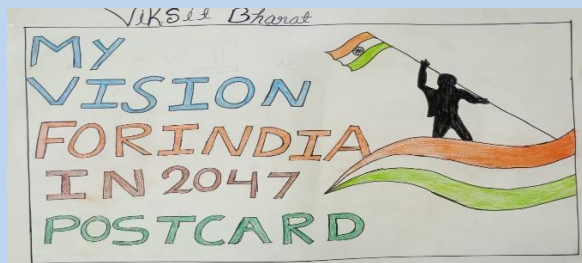 Viksit Bharat
MY
VISION
FORINDIA
IN 2047
POSTCARD